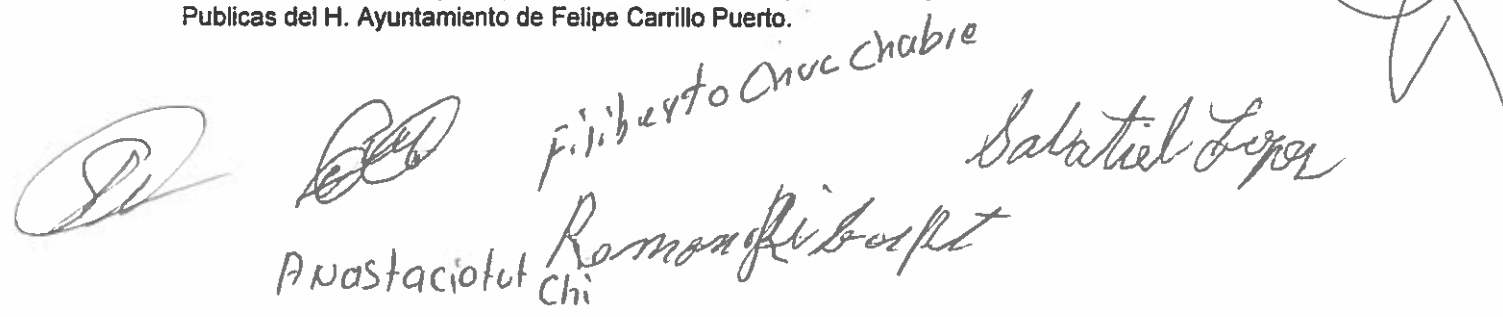 Publicas del H. Ayuntamiento de Felipe Carrillo Puerto.
Filiberto Chuc Chable
Salatiel Lopez
Anastacio tut
Chi
Ramon